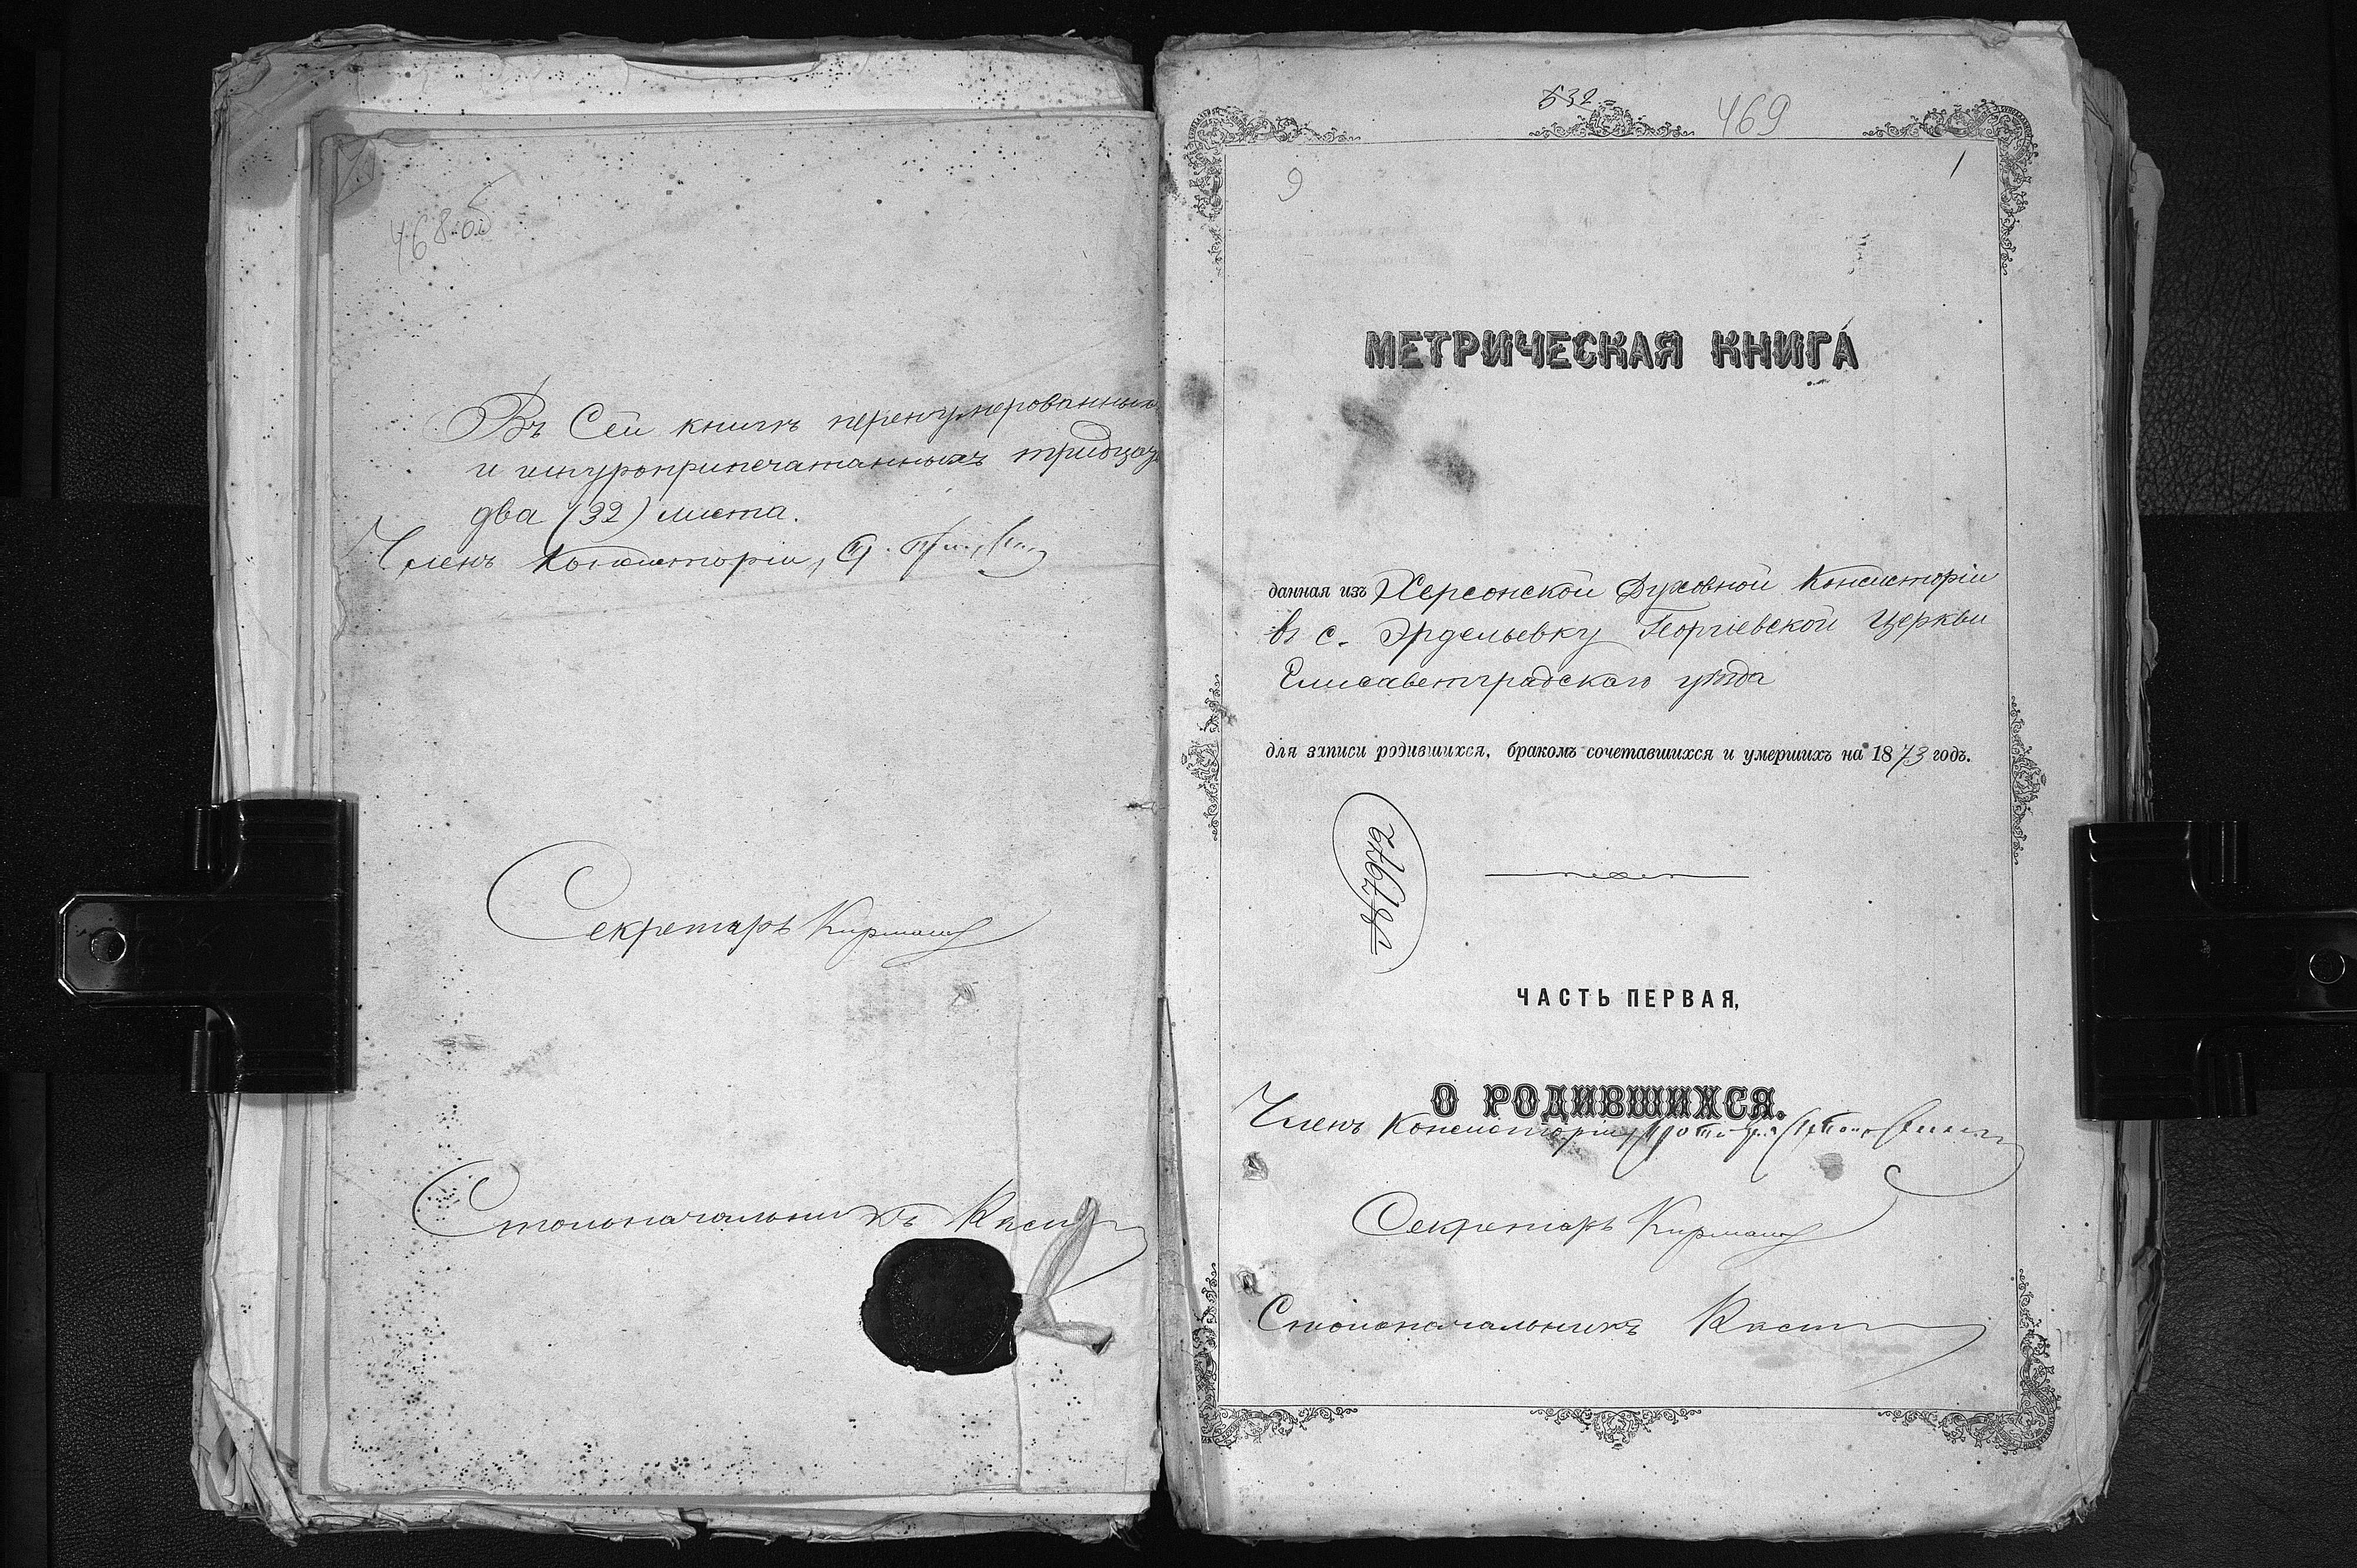 468 об
Въ Сей книгѣ перенумерованныхъ
и шнуроприпечатанныхъ тридцать
два (32) листа.
Членъ Консисторіи,
Секретарь
Столоначальникъ
532
469
9
1
МЕТРИЧЕСКАЯ КНИГА
данная изъ Херсонской Духовной Консисторіи
въ с. Эрдельевку Георгіевской Церкви
Елисаветградскаго уѣзда
для записи родившихся, бракомъ сочетавшихся и умершихъ на 1873 годъ.
ЧАСТЬ ПЕРВАЯ,
О РОДИВШИХСЯ.
Членъ Консисторіи
Секретарь
Столоначальникъ